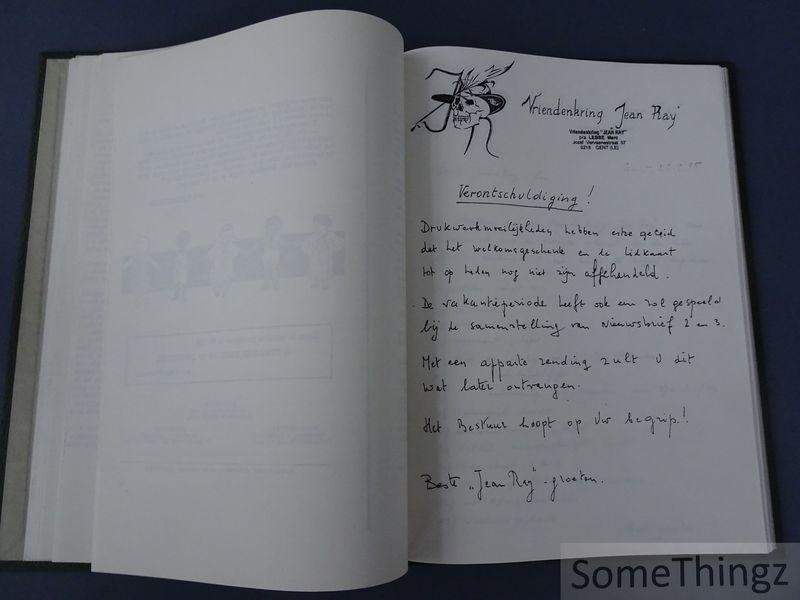 JR
Vriendenkring Jean Ray
Vriendenkring "JEAN RAY"
p/a LEBBE Marc
Jozef Vervaenestraat 57
9219 GENT (LE)
Verontschuldiging !
Drukwerkmoeilijkheden hebben ertoe geleid
dat het welkomsgeschenk en de lidkaart
tot op heden nog niet zijn afgehandeld.
De vakantieperiode heeft ook een rol gespeeld
bij de samenstelling van Nieuwsbrief 2 en 3.
Met een apparte zending zult U dit
wat later ontvangen.
Het Bestuur hoopt op Uw begrip!
Beste "Jean Ray"-groeten.
SomeThingz